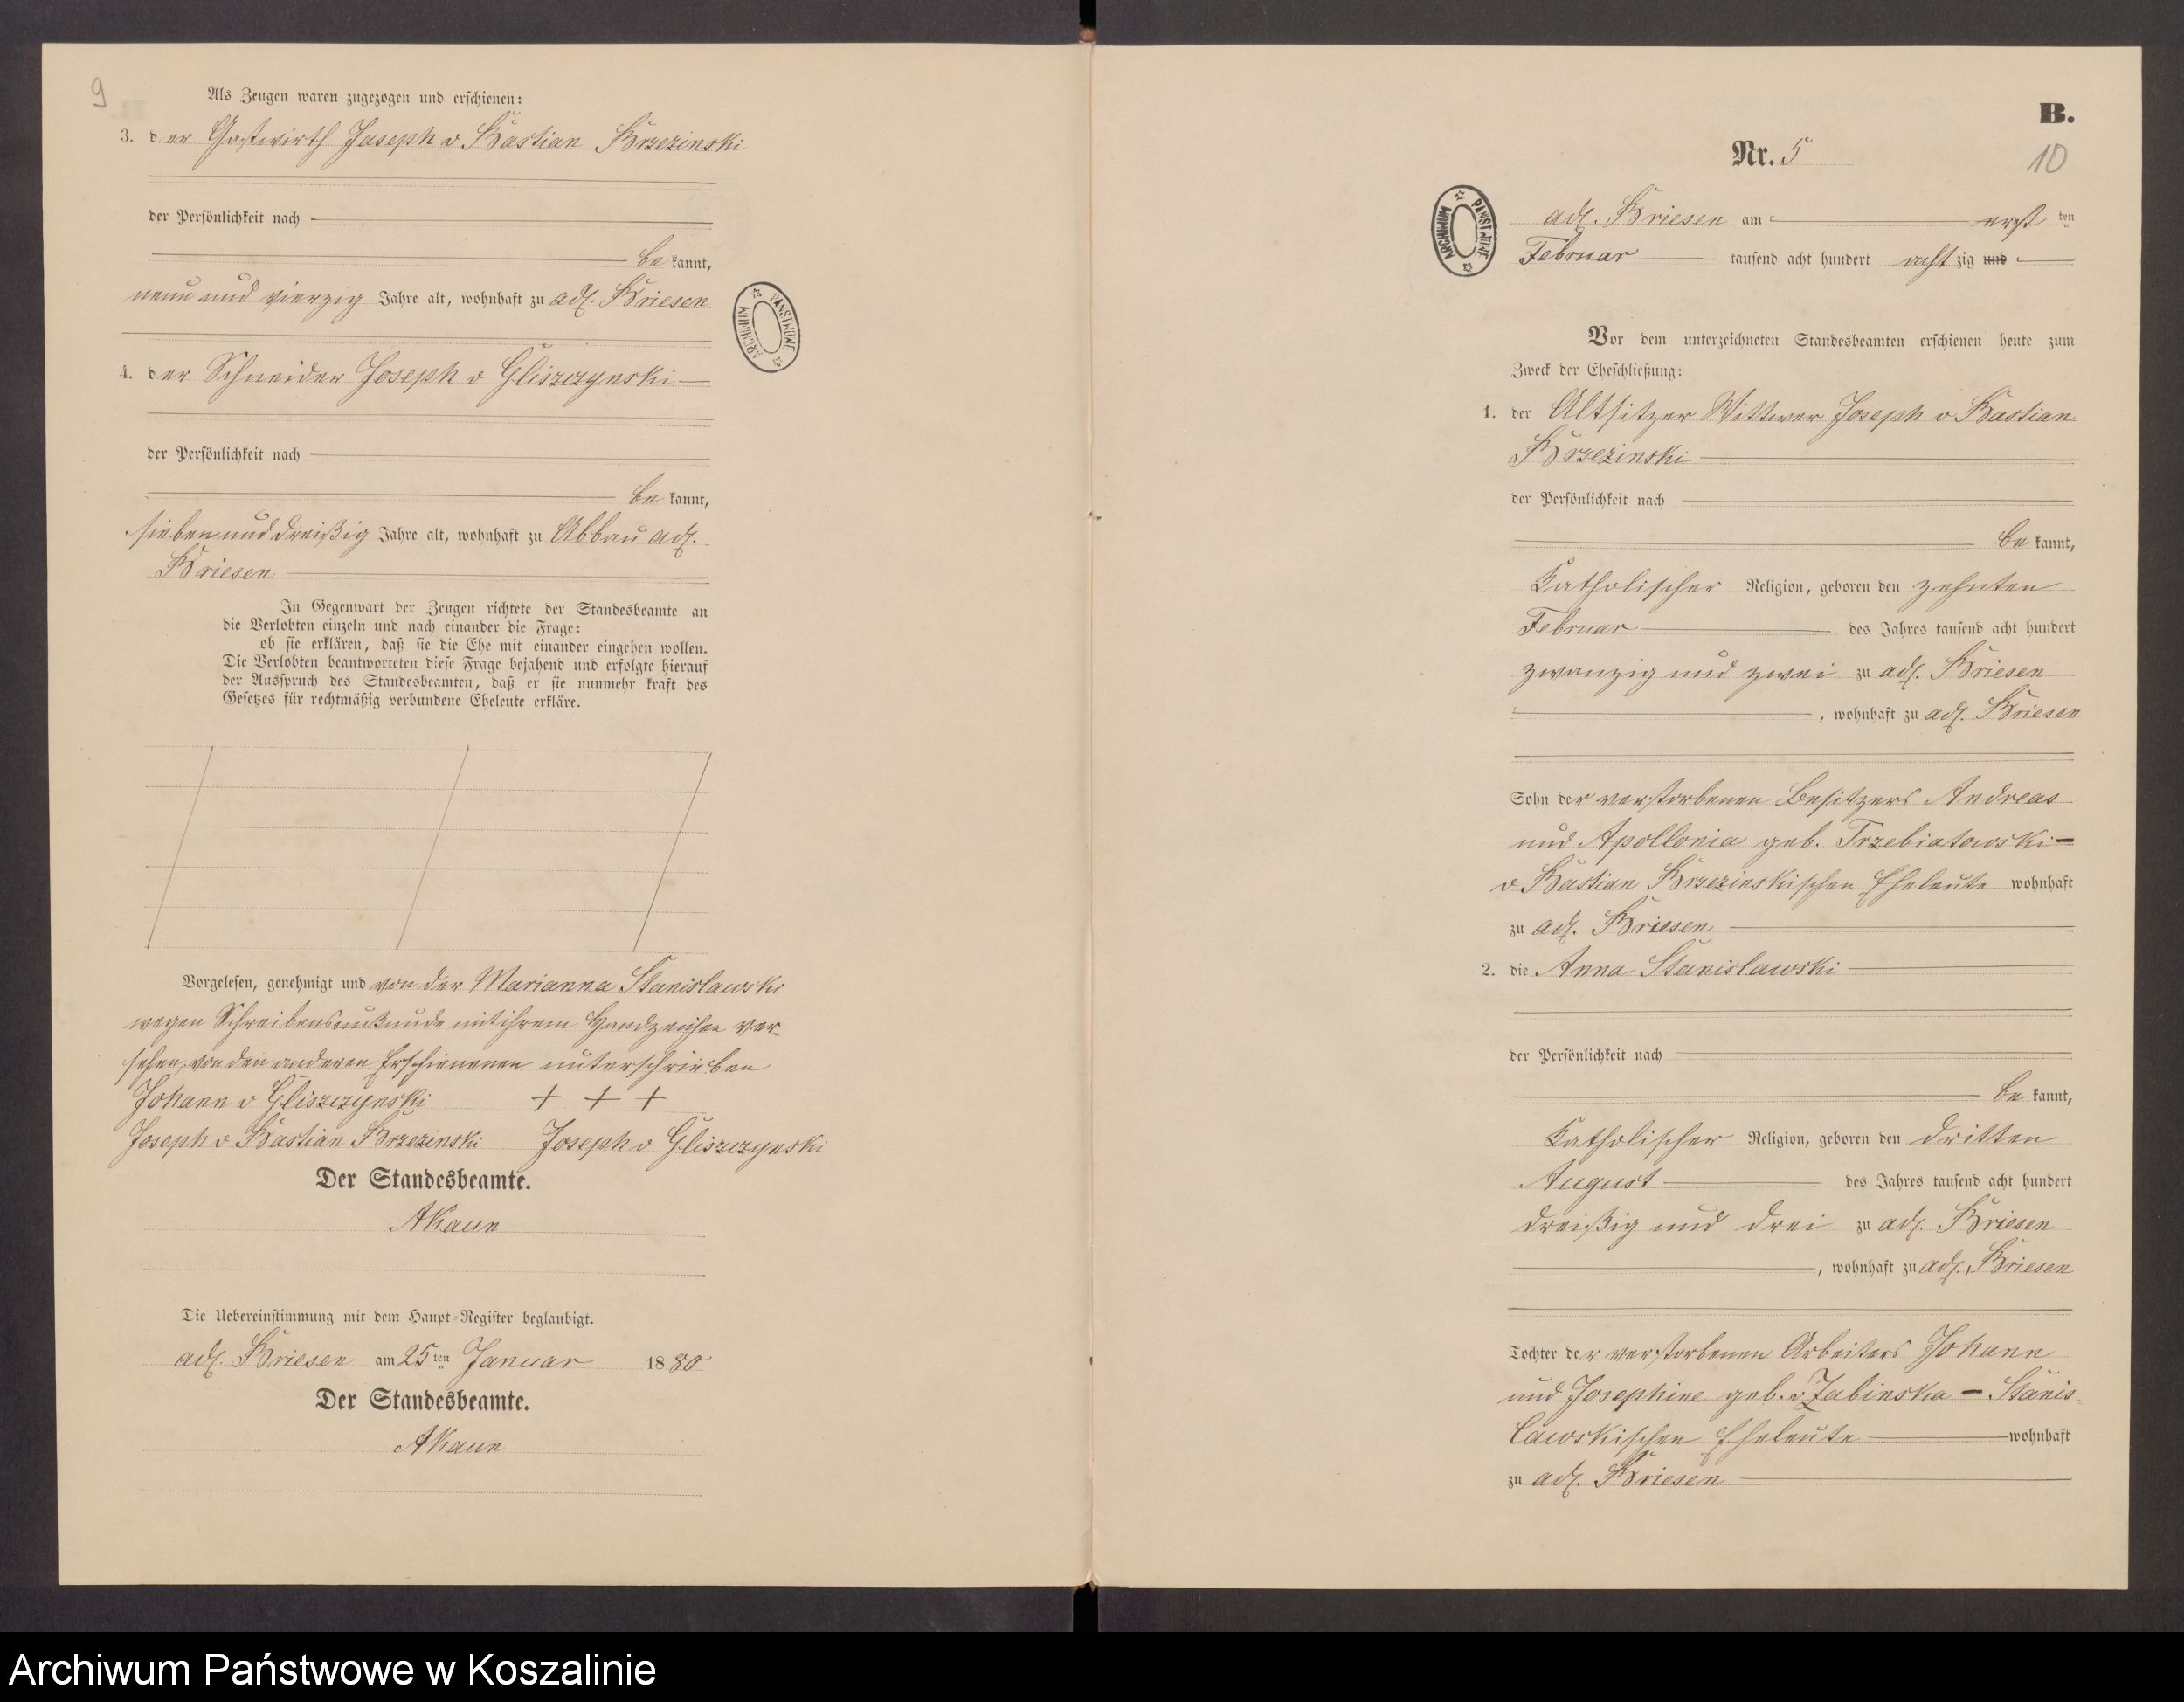 9
Als Zeugen waren zugezogen und erschienen:
3. der Gastwirth Joseph v Bastian Brzezinski
der Persönlichkeit nach
be kannt,
neun und vierzig Jahre alt, wohnhaft zu adl. Briesen
4. der Schneider Joseph v Gliszczynski
der Persönlichkeit nach
be kannt,
sieben und dreißig Jahre alt, wohnhaft zu Abbau adl.
Briesen
In Gegenwart der Zeugen richtete der Standesbeamte an
die Verlobten einzeln und nach einander die Frage:
ob sie erklären, daß sie die Ehe mit einander eingehen wollen.
Die Verlobten beantworteten diese Frage bejahend und erfolgte hierauf
der Ausspruch des Standesbeamten, daß er sie nunmehr kraft des
Gesetzes für rechtmäßig verbundene Eheleute erkläre.
Vorgelesen, genehmigt und von der Marianna Stanislawski
wegen Schreibensunkunde mit ihrem Handzeichen ver-
sehen, von den anderen Erschienenen unterschrieben
Johann v Gliszczynski + + +
Joseph v Bastian Brzezinski Joseph v Gliszczynski
Der Standesbeamte.
AKaun
Die Uebereinstimmung mit dem Haupt-Register beglaubigt.
adl. Briesen am 25ten Januar 1880
Der Standesbeamte.
AKaun
ARCHIWUM PAŃSTWOWE
B.
Nr. 5
10
ARCHIWUM PAŃSTWOWE
adl. Briesen am erst ten
Februar tausend acht hundert acht zig und
Vor dem unterzeichneten Standesbeamten erschienen heute zum
Zweck der Eheschließung:
1. der Altsitzer Wittwer Joseph v Bastian
Brzezinski
der Persönlichkeit nach
be kannt,
Katholischer Religion, geboren den zehnten
Februar des Jahres tausend acht hundert
zwanzig und zwei zu adl. Briesen
, wohnhaft zu adl. Briesen
Sohn der verstorbenen Besitzers Andreas
und Apollonia geb. Trzebiatowski -
v Bastian Brzezinskischen Eheleute wohnhaft
zu adl. Briesen
2. die Anna Stanislawski
der Persönlichkeit nach
be kannt,
Katholischer Religion, geboren den dritten
August des Jahres tausend acht hundert
dreißig und drei zu adl. Briesen
, wohnhaft zu adl. Briesen
Tochter der verstorbenen Arbeiters Johann
und Josephine geb. v Zabinska - Stanis-
lawskischen Eheleute wohnhaft
zu adl. Briesen
Archiwum Państwowe w Koszalinie